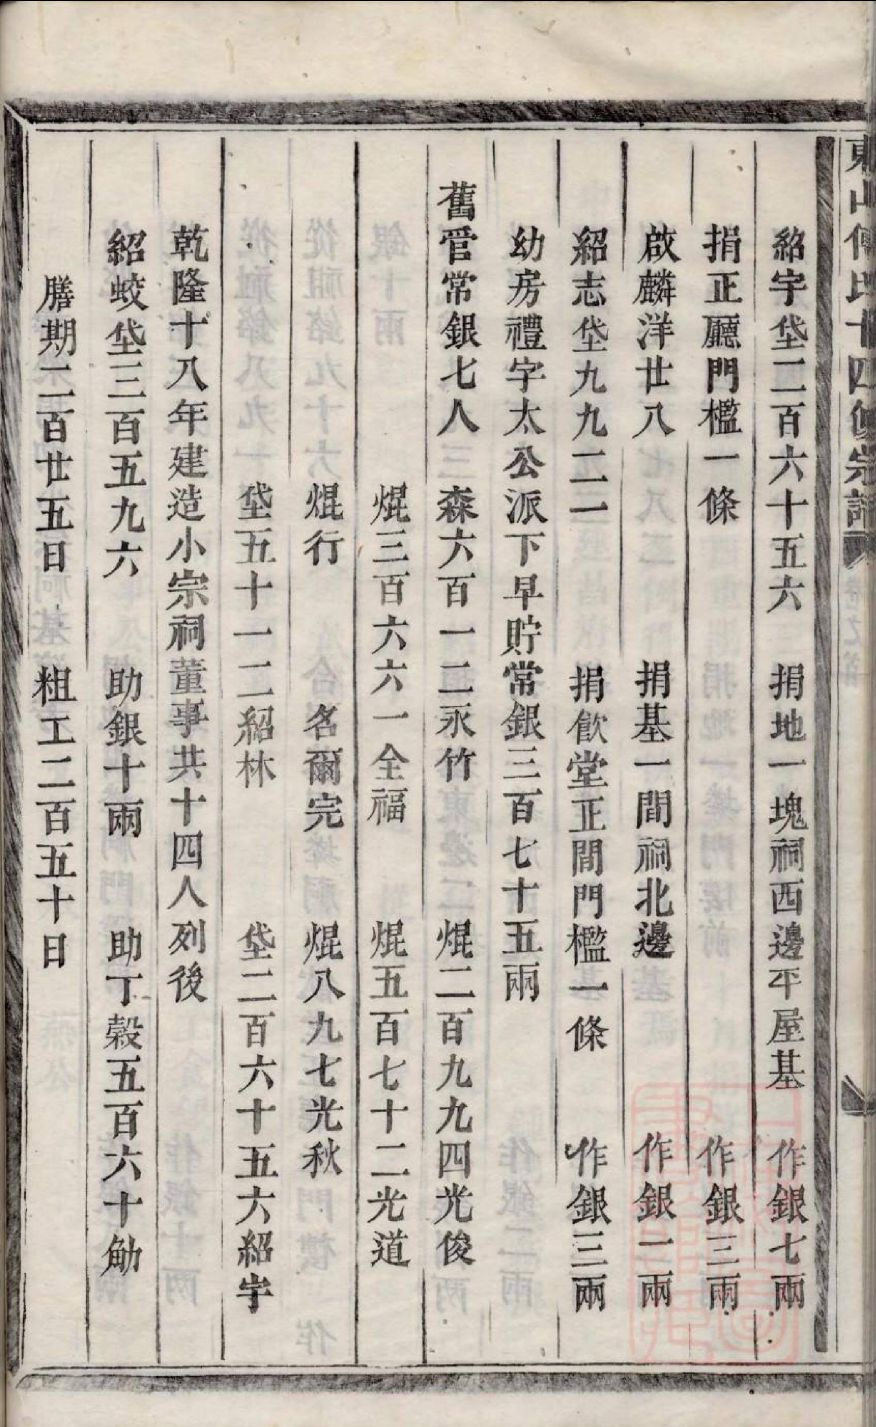 東山傅氏十四修宗譜
紹宇垈二百六十五六 捐地一塊祠西邊平屋基 作銀七兩
捐正廳門檻一條 作銀三兩
啟麟洋廿八 捐基一間祠北邊 作銀一兩
紹志垈九九二一 捐飲堂正間門檻一條 作銀三兩
幼房禮字太公派下早貯常銀三百七十五兩
舊管常銀七人 森六百一二永竹 焜二百九九四光俊
焜三百六六一全福 焜五百七十二光道
焜行 名爾完 焜八九七光秋
垈五十一二紹林 垈二百六十五六紹宇
乾隆十八年建造小宗祠董事共十四人列後
紹蛟垈三百五九六 助銀十兩 助丁穀五百六十觔
膳期二百廿五日 粗工二百五十日